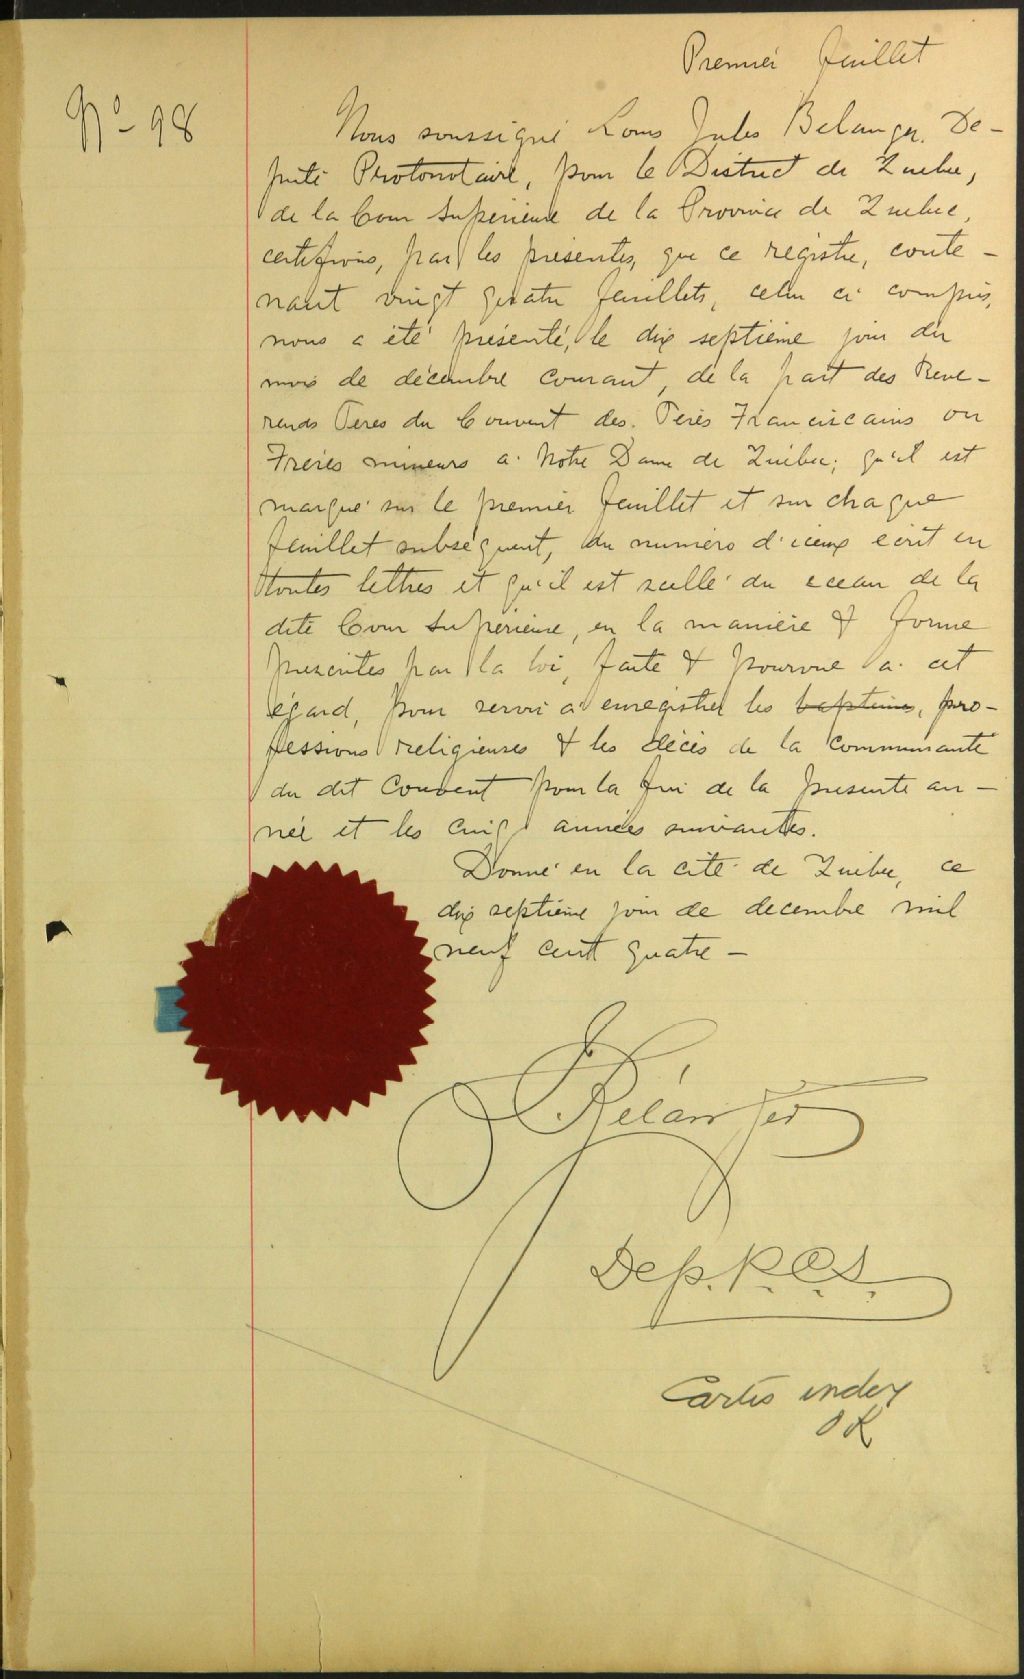 Premier feuillet
No 98
Nous soussigné Louis Jules Belanger, De-
puté Protonotaire, pour le District de Québec,
de la Cour Supérieure de la Province de Québec,
certifions, par les présentes, que ce registre, conte-
nant vingt quatre feuillets, celui ci compris,
nous a été présenté, le dix septième jour du
mois de décembre courant, de la part des Reve-
rends Pères du Couvent des Pères Franciscains ou
Frères mineurs a Notre Dame de Québec; qu'il est
marqué sur le premier feuillet et sur chaque
feuillet subséquent, du numéro d'iceux écrit en
toutes lettres et qu'il est scellé du sceau de la
dite Cour Supérieure, en la manière & forme
prescrites par la loi, faite & pourvue a cet
égard, pour servir a enregistrer les baptemes, pro-
fessions religieuses & les décès de la Communauté
du dit Couvent pour la fin de la presente an-
née et les cinq années suivantes.
Donné en la cité de Québec, ce
dix septième jour de decembre mil
neuf cent quatre -
Bélanger
Dep. P. C. S.
Cartes index
OK